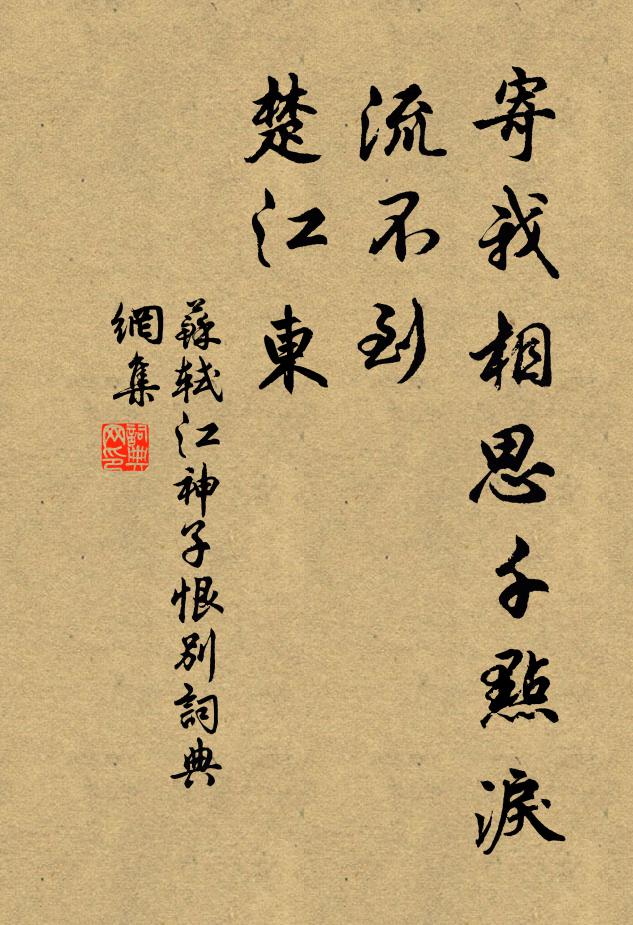 寄我相思千點淚
流不到
楚江東
蘇軾江神子恨別詞典
網集
詞典
网印